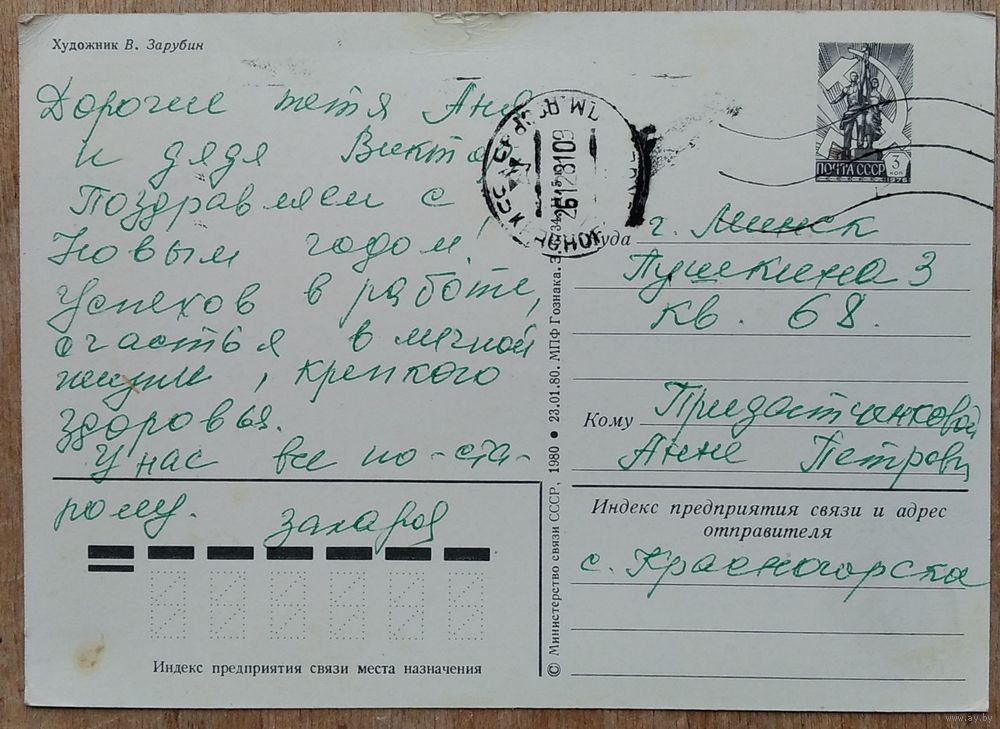 Художник В. Зарубин
Дорогие тетя Аня
и дядя Виктор
Поздравляем с
Новым годом!
Успехов в работе,
счастья в личной
жизни, крепкого
здоровья.
У нас все по-ста-
рому. Захаров
Индекс предприятия связи места назначения
© Министерство связи СССР, 1980 • 23.01.80. МПФ Гознака. З.
26128109
ПОЧТА СССР
3
КОП
1976
Куда г. Минск
Пушкина 3
кв. 68.
Кому Придатченковой
Анне Петровн
Индекс предприятия связи и адрес
отправителя
с. Красногорска
www.ay.by